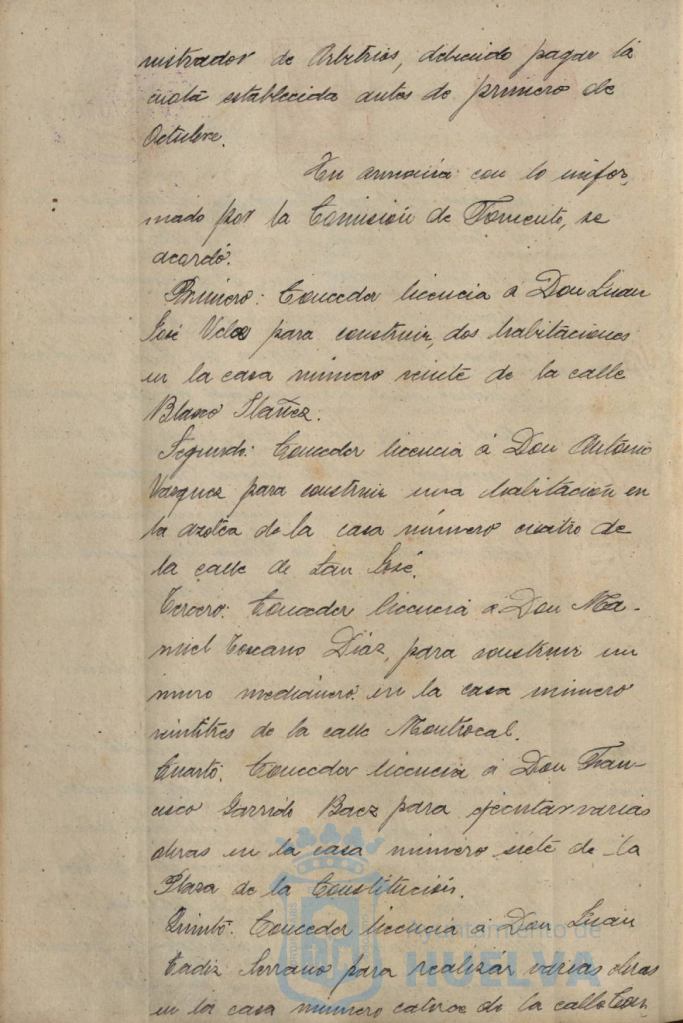 nistrador de Arbitrios, debiendo pagar la
cuota establecida antes de primero de
Octubre.
En armonia con lo infor,
mado por la Comisión de Fomento, se
acordó.
Primero: Conceder licencia á Don Juan
José Velez para construir, dos habitaciones
en la casa número veinte de la calle
Blasco Ibañez.
Segundo: Conceder licencia á Don Antonio
Vazquez para construir una habitación en
la azotea de la casa número cuatro de
la calle de San José.
Tercero: Conceder licencia á Don Ma-
nuel Toscano Diaz, para construir un
muro medianero en la casa número
veintitres de la calle Montrocal.
Cuarto: Conceder licencia á Don Fran-
cisco Garrido Baez para ejecutar varias
obras en la casa número siete de la
Plaza de la Constitución.
Quinto: Conceder licencia á Don Juan
Cadiz Serrano para realizar varias obras
en la casa número catorce de la calle
Ayuntamiento de
HUELVA